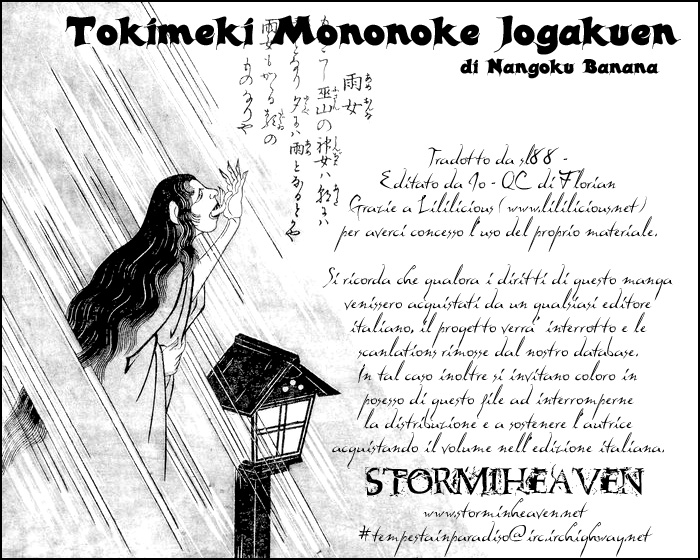 Tokimeki Mononoke Jogakuen
di Nangoku Banana
雨女
Tradotto da sl88 -
Editato da Io - QC di Florian
Grazie a Lililicious (www.lililicious.net)
per averci concesso l'uso del proprio materiale.
Si ricorda che qualora i diritti di questo manga
venissero acquistati da un qualsiasi editore
italiano, il progetto verra' interrotto e le
scanlations rimosse dal nostro database.
In tal caso inoltre si invitano coloro in
posesso di questo file ad interromperne
la distribuzione e a sostenere l'autrice
acquistando il volume nell'edizione italiana.
STORMINHEAVEN
www.storminheaven.net
#tempestainparadiso@irc.irchighway.net